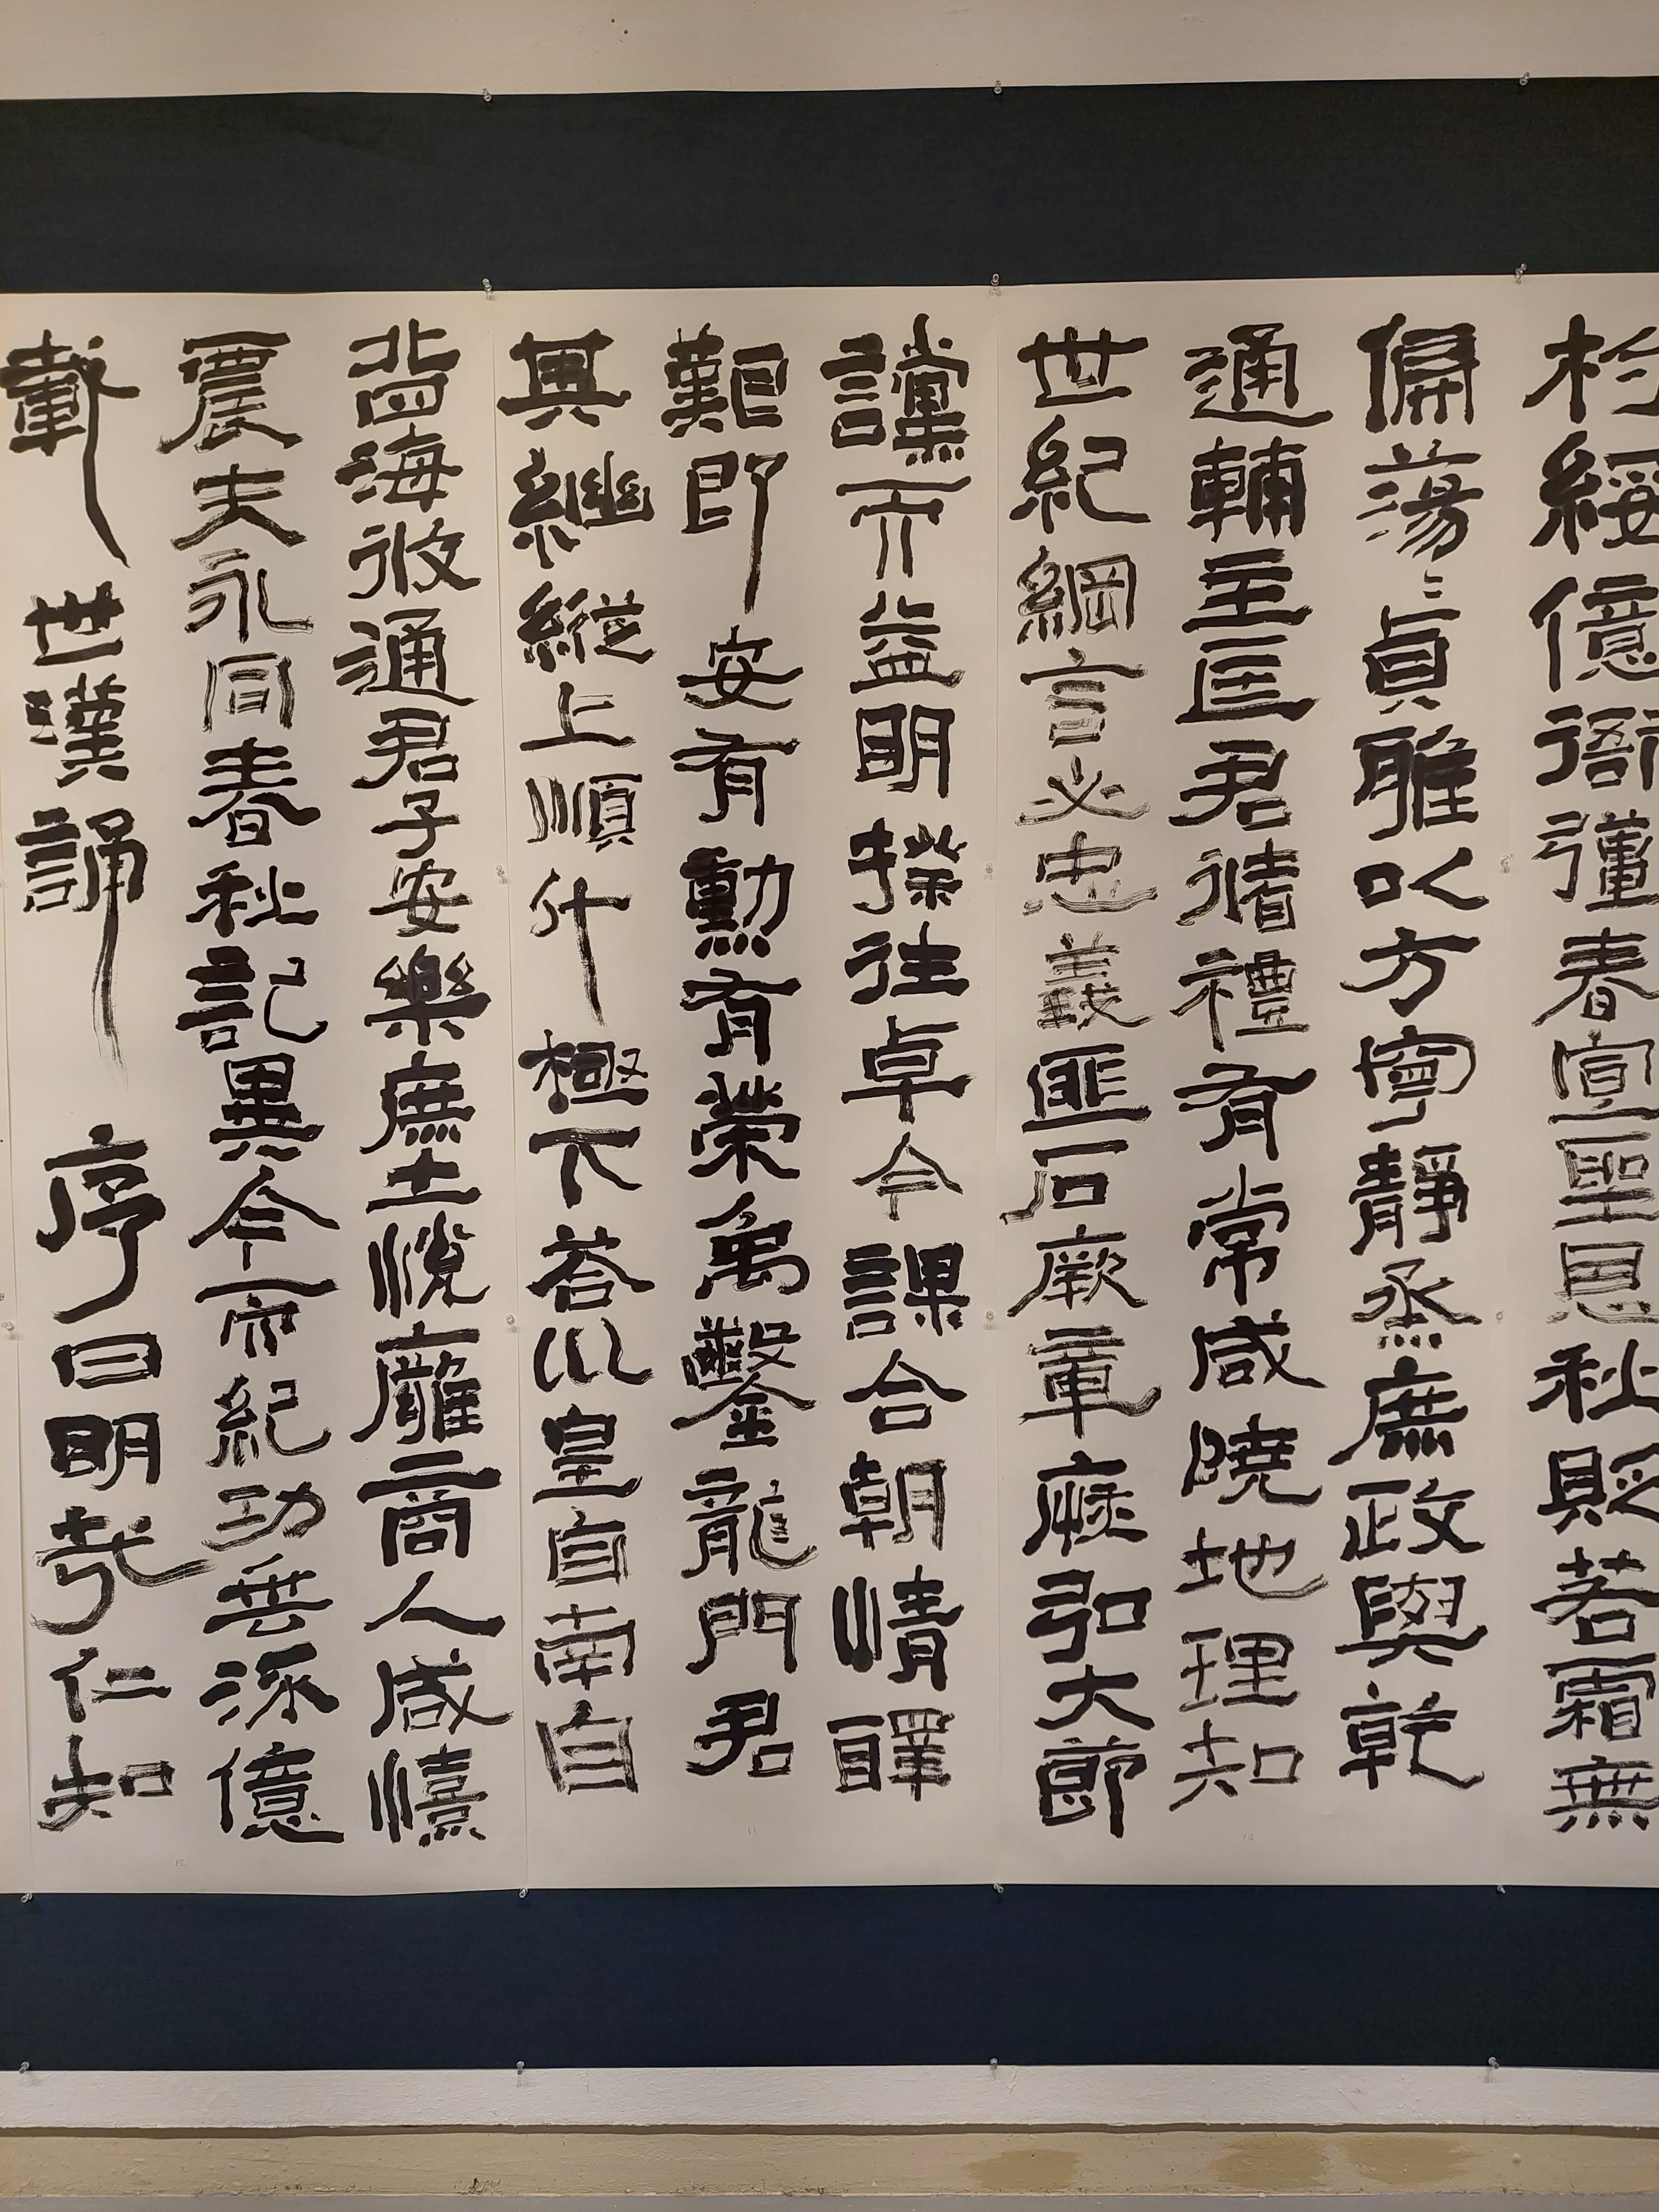 杓綏億衙彊春宣聖恩秋貶若霜無
偏蕩〻貞雅以方寧靜烝庶政與乾
通輔主匡君循禮有常咸曉地理知
世紀綱言必忠義匪石厥章恢弘大節
讜而益明揆往卓今謀合朝情醳
艱即安有勳有榮禹鑿龍門君
其繼縱上順斗極下荅坤皇自南自
北四海攸通君子安樂庶士悅雍商人咸憘
農夫永同春秋記異今而紀功垂流億
載世世漢誦序曰明哉仁知